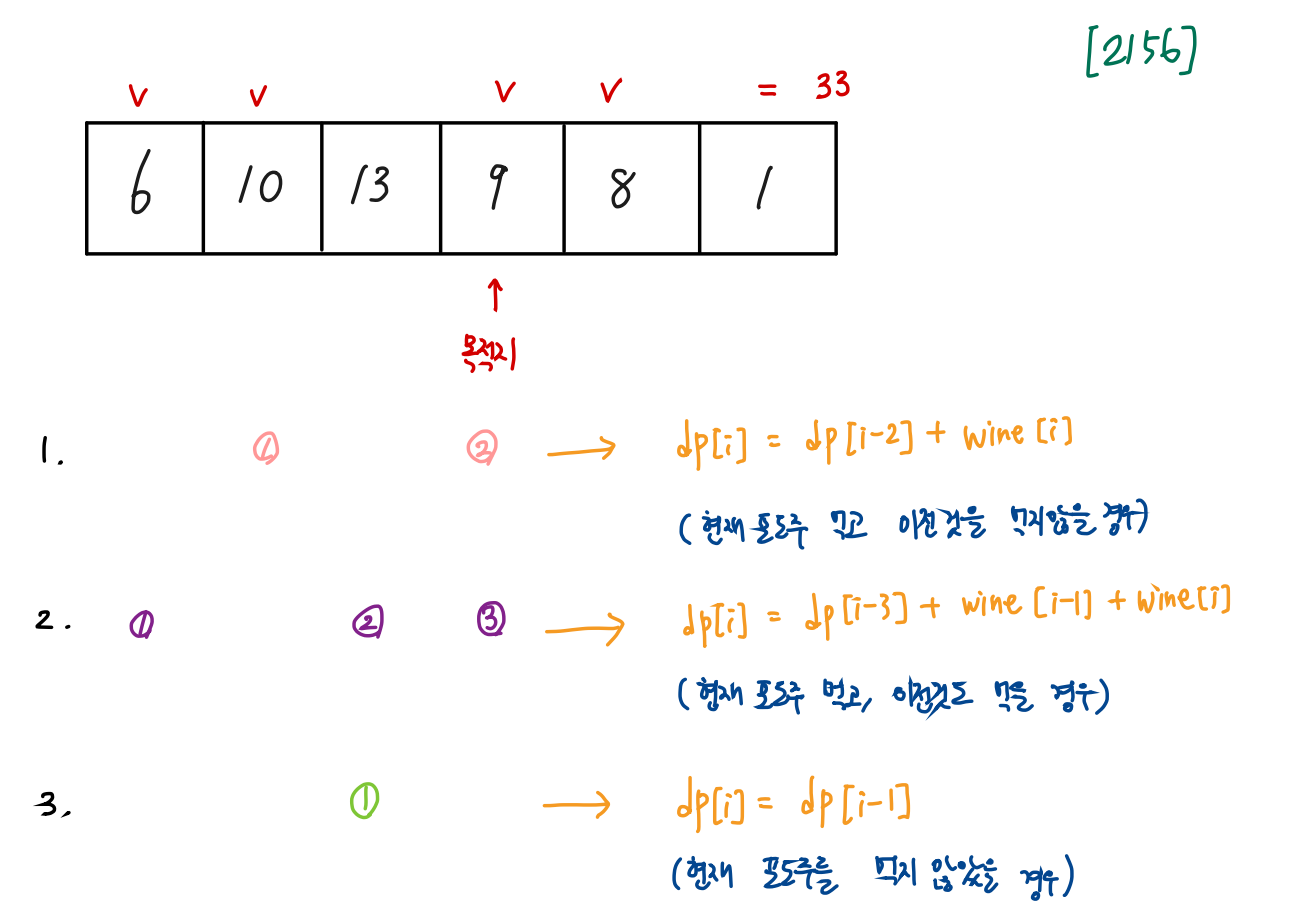 [2156]
v v v v = 33
6 10 13 9 8 1
↑
목적지
1. ① ② → dp[i] = dp[i-2] + wine[i]
(현재 포도주 먹고 이전것을 먹지않을 경우)
2. ① ② ③ → dp[i] = dp[i-3] + wine[i-1] + wine[i]
(현재 포도주 먹고, 이전것도 먹을 경우)
3. ① → dp[i] = dp[i-1]
(현재 포도주를 먹지 않았을 경우)